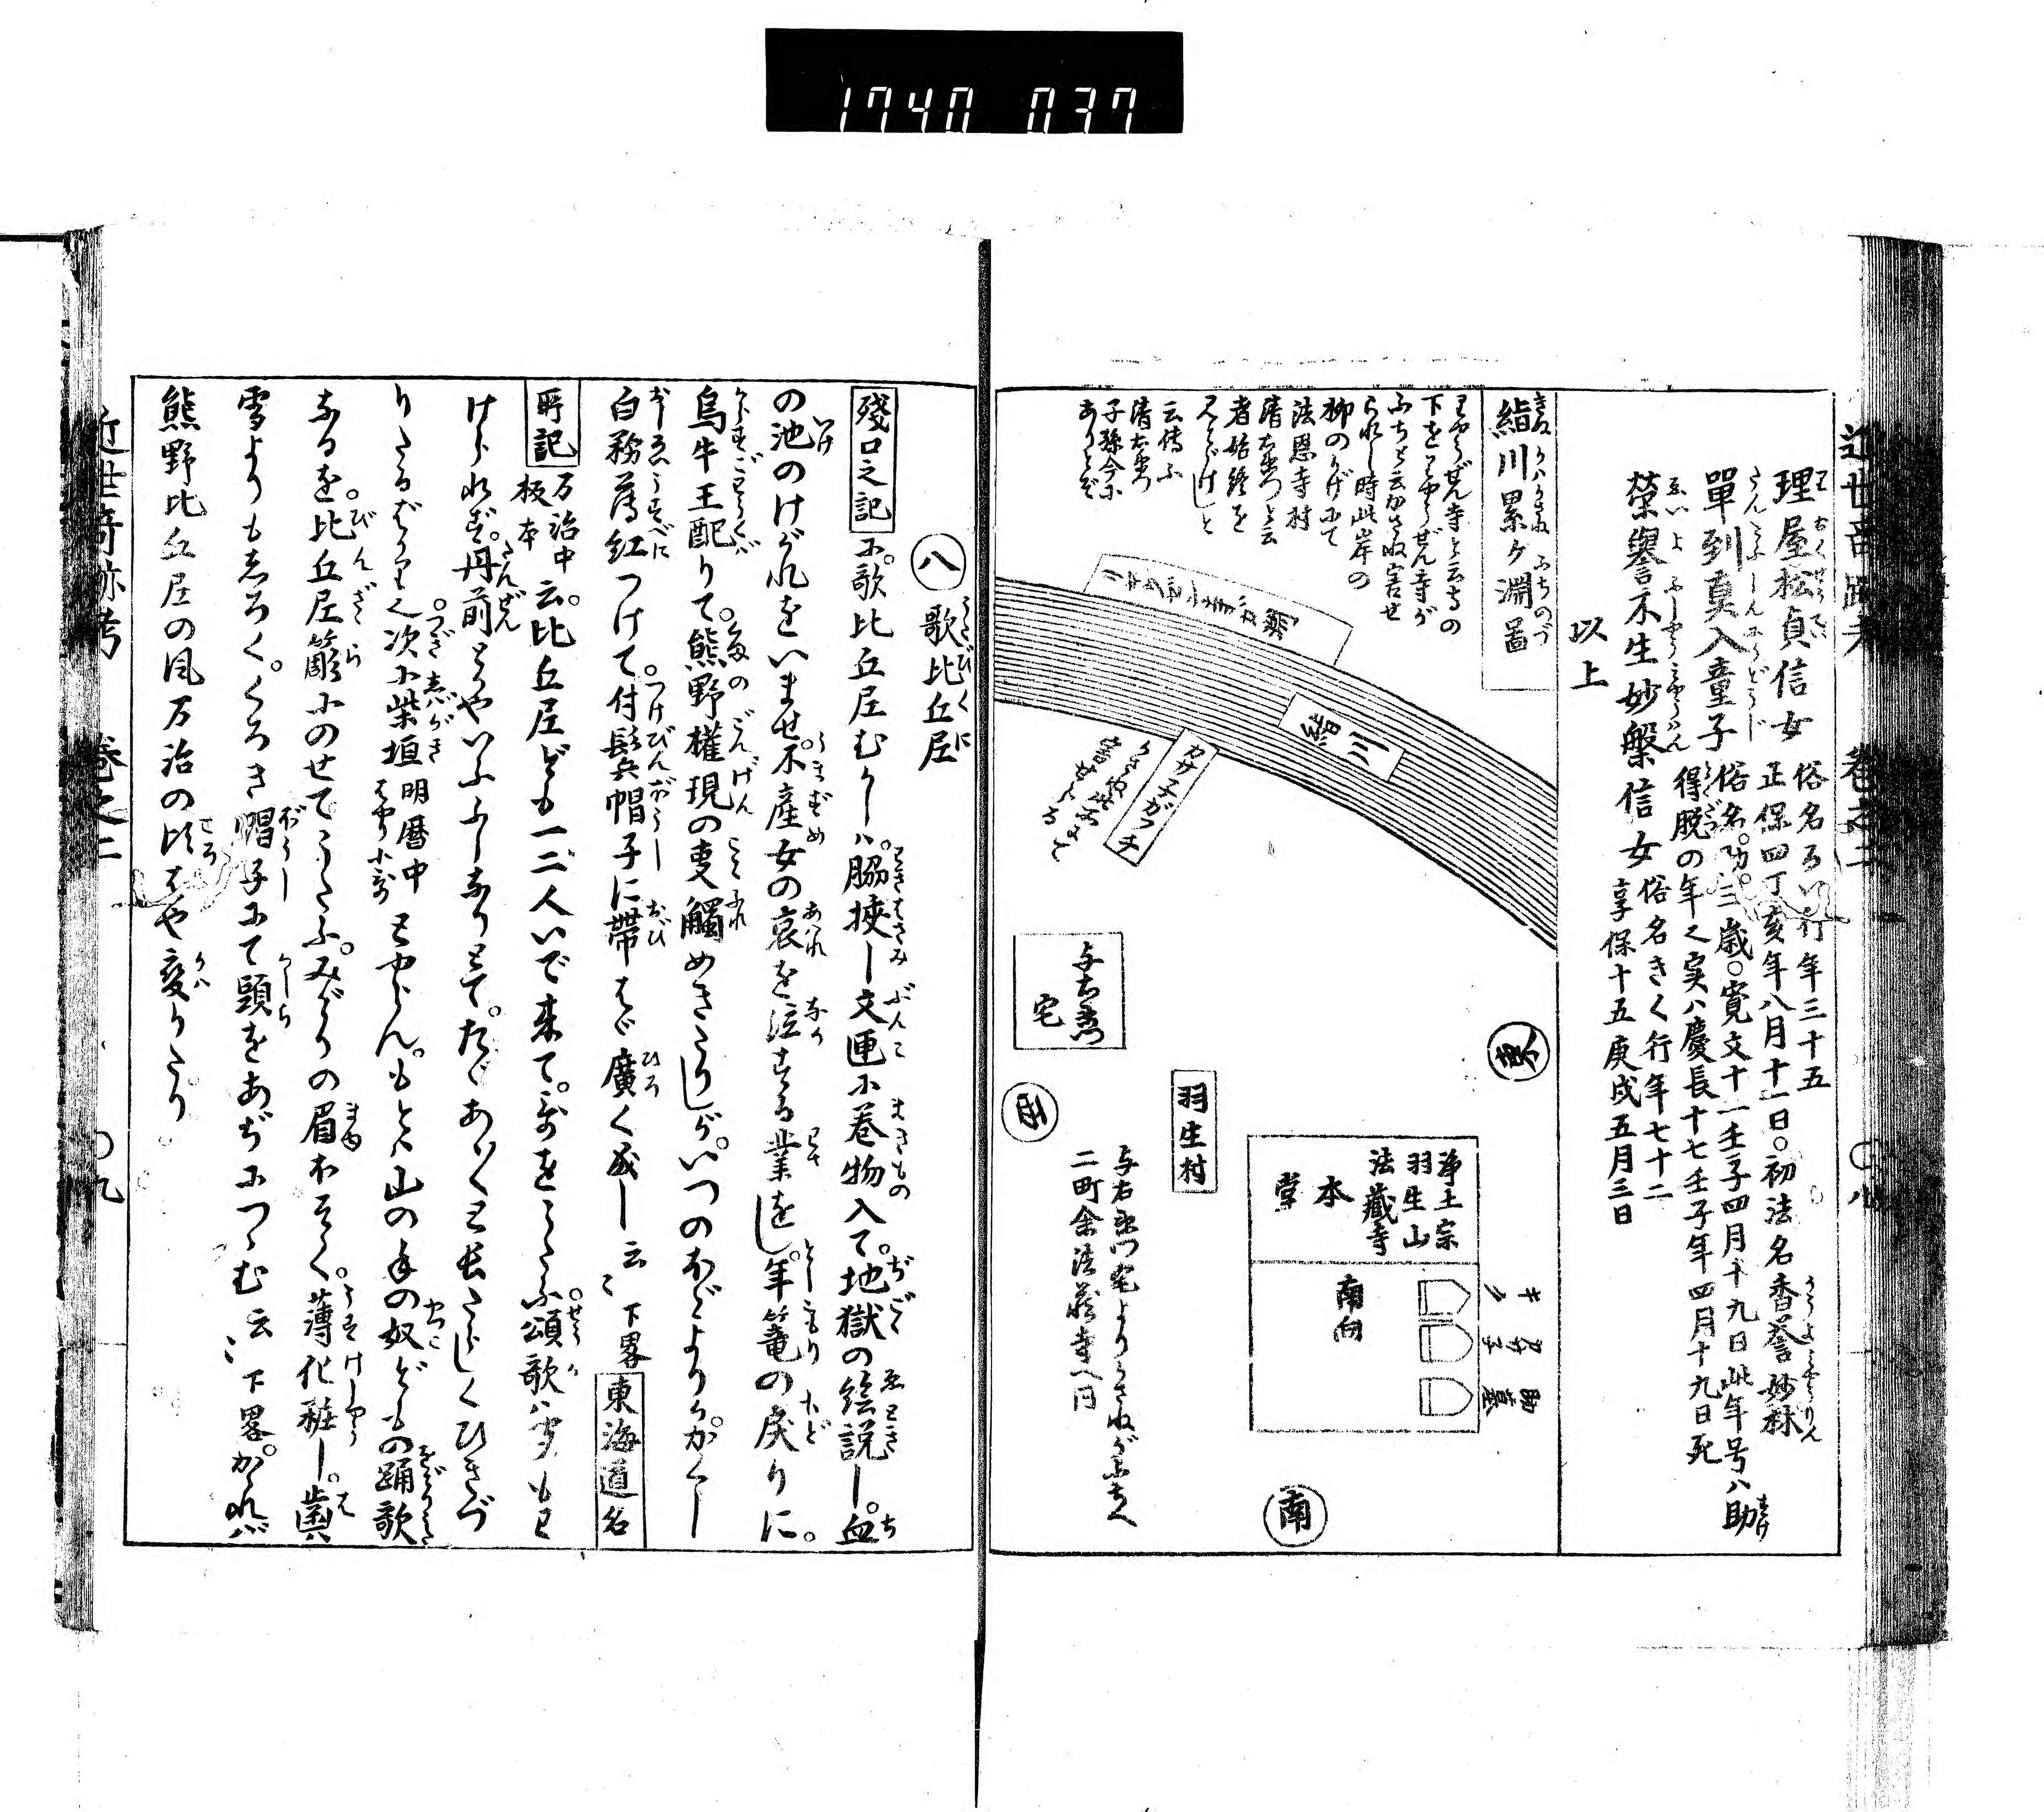 1740 037
近世奇跡考 巻之二 〇八
理屋松貞信女 俗名るい行年三十五
正保四丁亥年八月十一日〇初法名香誉妙林
單到真入童子 俗名。助。三歳〇寛文十一壬子四月十九日此年号ハ助
得脱の年也実ハ慶長十七壬子年四月十九日死
栄譽不生妙槃信女 俗名きく行年七十二
享保十五庚戌五月三日
以上
絹川累ケ淵啚
ふちと云かさね害せ
られし時此岸の
柳のかげにて
法恩寺村
清右衛門と云
者始終を
見とゞけしと
云傳ふ
清右衛門
子孫今に
ありとぞ
絹川
カサネガフチ
かさね此所にて
害せらる
与右衛門
宅
東
西
南
羽生村
浄土宗
羽生山
法藏寺
本
堂
南向
キク
カサネ
助墓
与右衛門宅よりかさねがふちへ
二町余法蔵寺へ同
八 歌比丘尼
殘口之記に。歌比丘尼むかしハ。脇挾し文匣に巻物入て。地獄の絵説し。血
の池のけがれをいませ。不産女の哀を泣する業をし。年篭の戻りに。
烏牛王配りて。熊野權現の事觸めきたりしが。いつのほどよりか。かくし
白粉薄紅つけて。付鬢帽子に帯はゞ廣く成し云〻下畧 東海道名
所記 万治中板本 云。比丘尼ども一二人いで来て。哥をうたふ。頌歌ハ聞もわ
けられず。丹前とかやいふふしなりとて。たゞあゝ〳〵と長たらしくひきづ
りたるばかり也。次に柴垣 明暦中はやり小哥 とやらん。もとハ山の手の奴どもの踊歌
なるを。比丘尼簓にのせてうたふ。みどりの眉ほそく。薄化粧し。歯ハ
雪よりもしろく。くろき帽子にて頭をあぢにつゝむ云〻下畧。かゝれバ
熊野比丘尼の風万治の比はや変りたり
近世奇跡考 巻之二 〇九